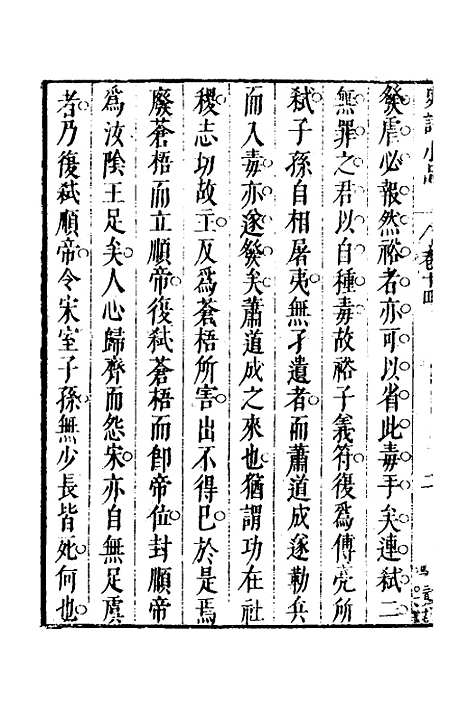 發虐必報然裕者亦可以省此毒手矣連弑二
無罪之君以自種毒故裕子義符復爲傅亮所
弑子孫自相屠夷無孑遺者而蕭道成遂勒兵
而入毒亦遂發矣蕭道成之來也猶謂功在社
稷志切故主反爲蒼梧所害出不得已於是焉
廢蒼梧而立順帝復弑蒼梧而卽帝位封順帝
爲汝陰王足矣人心歸齊而怨宋亦自無足虞
者乃復弑順帝令宋室子孫無少長皆死何也